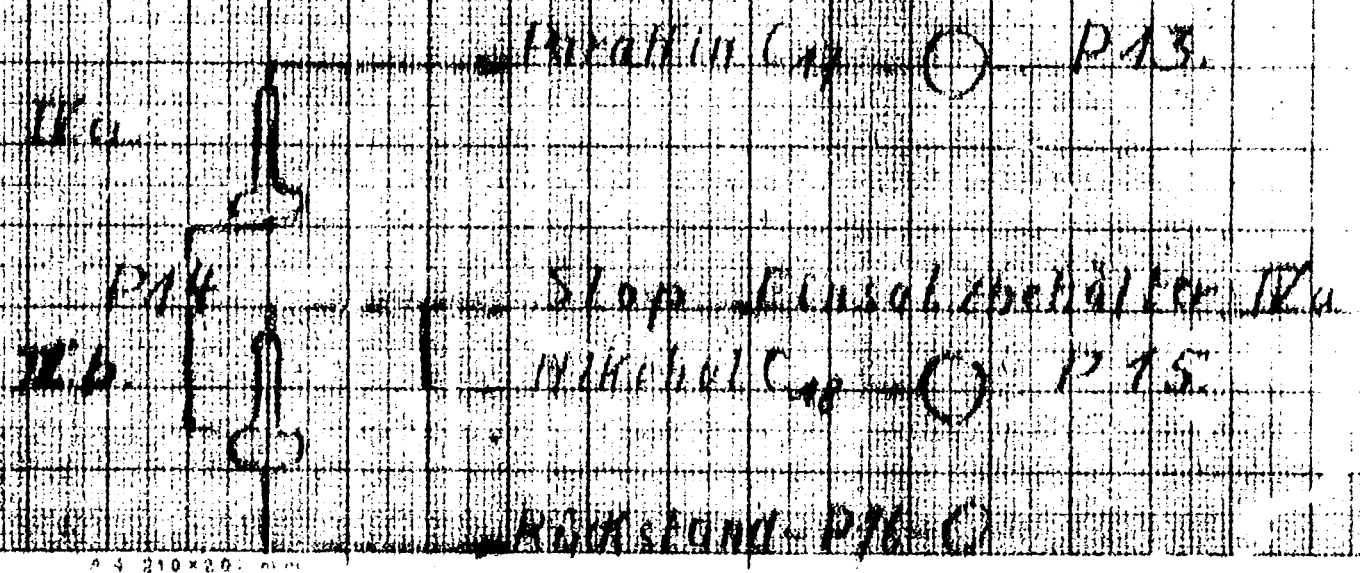 Paraffin C17 P13.
IVa.
P14
Stop Einsatzbehälter IVa
IVb. Alkohol C18 P15.
Rückstand - P16
A4 210×297 mm